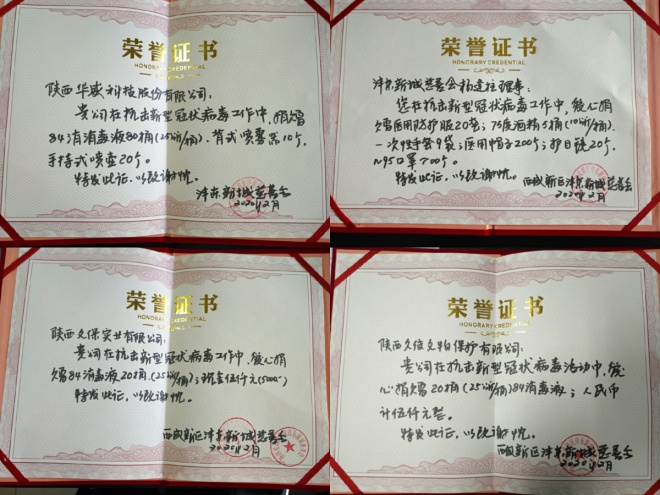 荣誉证书
HONORARY CREDENTIAL
陕西华威科技股份有限公司:
贵公司在抗击新型冠状病毒工作中,捐赠
84消毒液80桶(25kg/桶)、背式喷雾器10个
手持式喷雾20个。
特发此证,以致谢忱。
沣东新城慈善会
2020年2月
荣誉证书
HONORARY CREDENTIAL
沣东新城慈善会 理事:
您在抗击新型冠状病毒工作中,爱心捐
赠医用防护服20套;75度酒精5桶(10kg/桶)、
一次性手套9袋;医用帽子200个;护目镜20个
N95口罩 00个。
特发此证,以致谢忱。
西咸新区沣东新城慈善会
2020年2月
荣誉证书
HONORARY CREDENTIAL
陕西久保实业有限公司:
贵公司在抗击新型冠状病毒工作中,爱心捐
赠84消毒液20桶(25kg/桶);现金伍仟元(5000)
特发此证,以致谢忱。
西咸新区沣东新城慈善会
2020年2月
荣誉证书
HONORARY CREDENTIAL
陕西久倍文物保护有限公司:
贵公司在抗击新型冠状病毒活动中,爱
心捐赠20桶(25kg/桶)84消毒液;人民币
计伍仟元整。
特发此证,以致谢忱。
西咸新区沣东新城慈善会
2020年2月